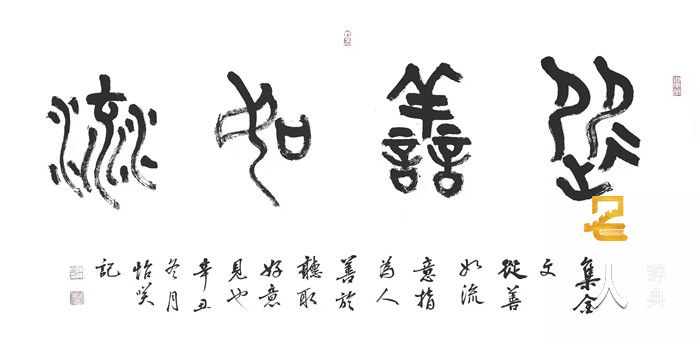 從善如流
集金
文
從善
如流
意指
為人
善於
聽取
好意
見也
辛丑
冬月
怡咲
記
人
辞典